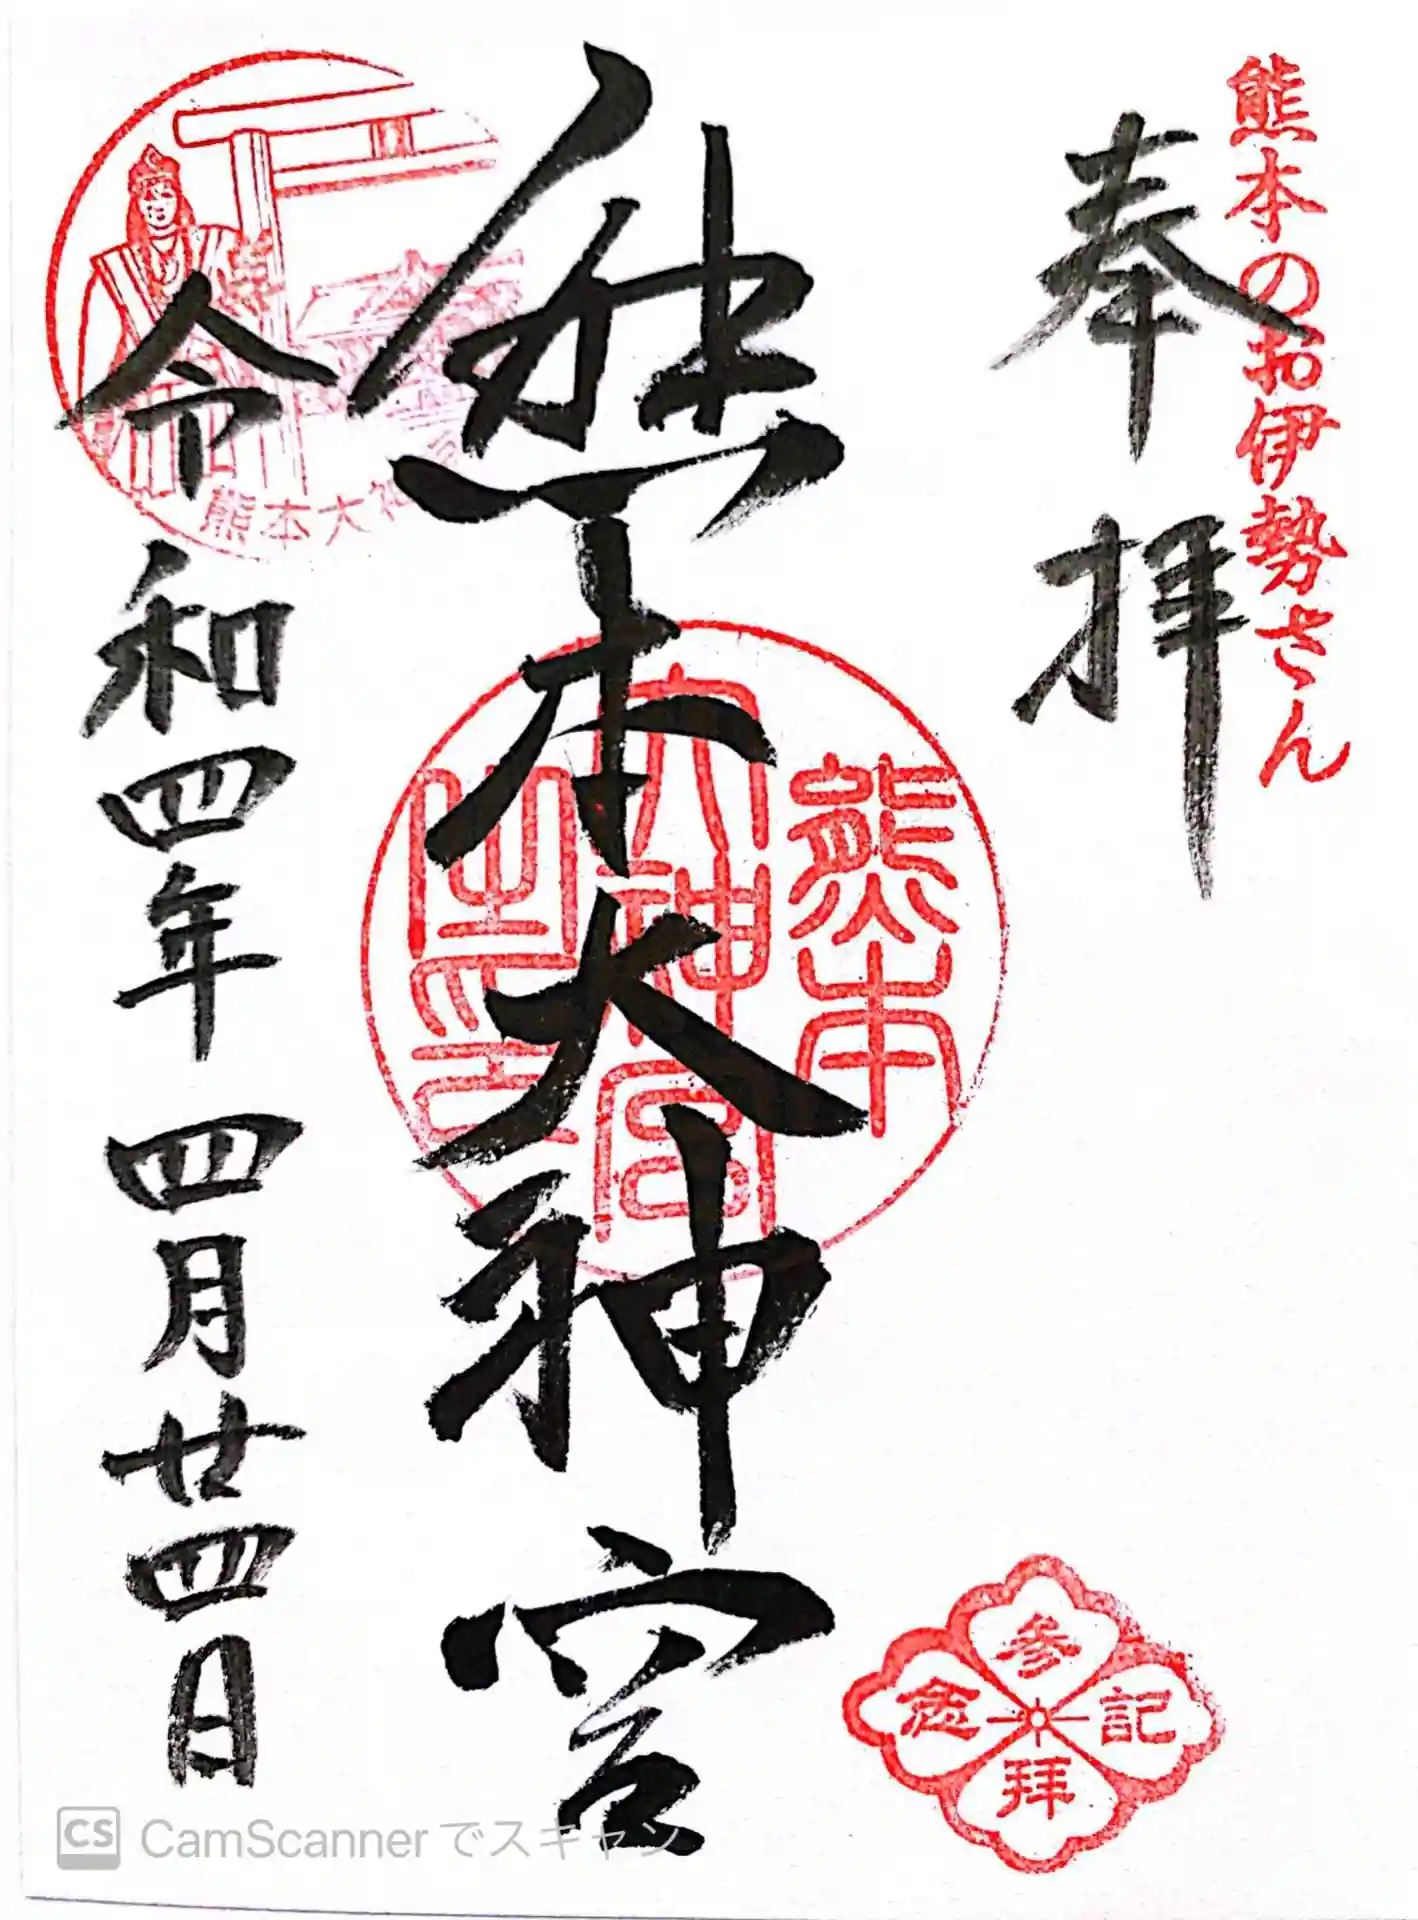 熊本のお伊勢さん
奉拝
熊本
大神宮
之印
熊本大神宮
熊本大神
令和四年 四月廿四日
参拝
記念
CS CamScannerでスキャン